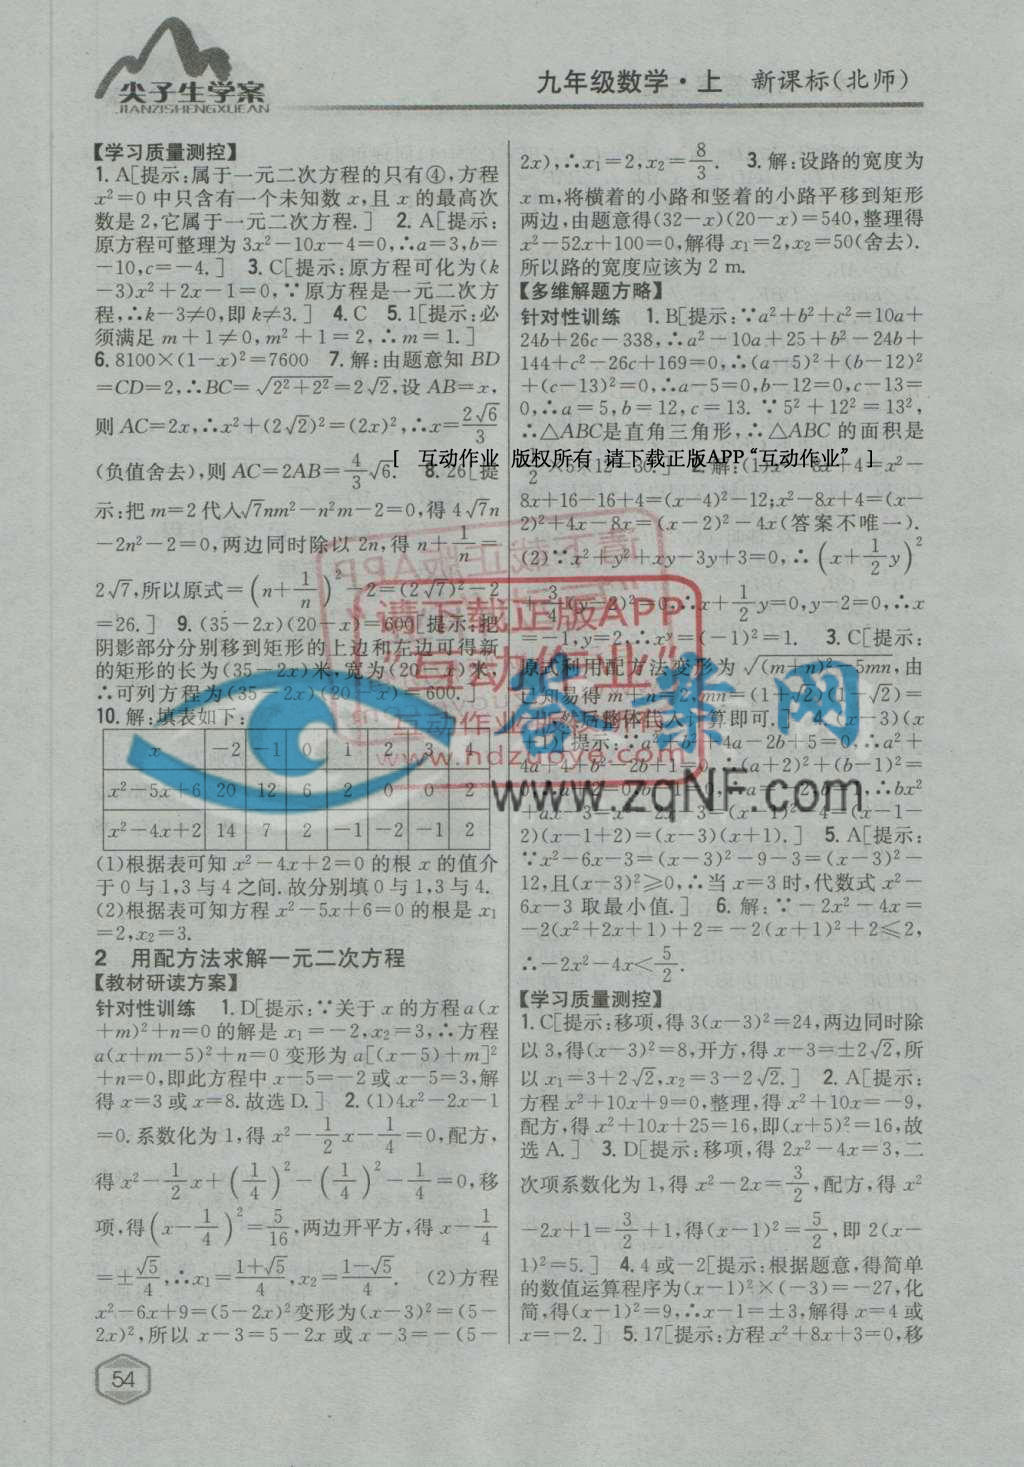 尖子生学案
JIANZISHENGXUEAN
九年级数学·上 新课标(北师)
【学习质量测控】
1. A[提示:属于一元二次方程的只有④,方程
x²=0 中只含有一个未知数 x,且 x 的最高次
数是 2,它属于一元二次方程.] 2. A[提示:
原方程可整理为 3x²-10x-4=0,∴a=3,b=
-10,c=-4.] 3. C[提示:原方程可化为(k
-3)x²+2x-1=0,∵原方程是一元二次方
程,∴k-3≠0,即 k≠3.] 4. C 5. 1[提示:必
须满足 m+1≠0,m²+1=2,∴m=1.]
6. 8100×(1-x)²=7600 7. 解:由题意知 BD
=CD=2,∴BC=√(2²+2²)=2√2,设 AB=x,
则 AC=2x,∴x²+(2√2)²=(2x)²,∴x=2√6/3
(负值舍去),则 AC=2AB=4/3√6. 8. 26[提
示:把 m=2 代入√7nm²-n²m-2=0,得 4√7n
-2n²-2=0,两边同时除以 2n,得 n+1/n=
2√7,所以原式=(n+1/n)²-2=(2√7)²-2
=26.] 9. (35-2x)(20-x)=600[提示:把
阴影部分分别移到矩形的上边和左边可得新
的矩形的长为(35-2x)米,宽为(20-x)米,
∴可列方程为(35-2x)(20-x)=600.]
10. 解:填表如下:
x -2 -1 0 1 2 3 4
x²-5x+6 20 12 6 2 0 0 2
x²-4x+2 14 7 2 -1 -2 -1 2
(1)根据表可知 x²-4x+2=0 的根 x 的值介
于 0 与 1,3 与 4 之间.故分别填 0 与 1,3 与 4.
(2)根据表可知方程 x²-5x+6=0 的根是 x₁
=2,x₂=3.
2 用配方法求解一元二次方程
【教材研读方案】
针对性训练 1. D[提示:∵关于 x 的方程 a(x
+m)²+n=0 的解是 x₁=-2,x₂=3,∴方程
a(x+m-5)²+n=0 变形为 a[(x-5)+m]²
+n=0,即此方程中 x-5=-2 或 x-5=3,解
得 x=3 或 x=8.故选 D.] 2. (1)4x²-2x-1
=0.系数化为 1,得 x²-1/2x-1/4=0,配方,
得 x²-1/2x+(1/4)²-(1/4)²-1/4=0,移
项,得(x-1/4)²=5/16,两边开平方,得 x-1/4
=±√5/4,∴x₁=(1+√5)/4,x₂=(1-√5)/4. (2)方程
x²-6x+9=(5-2x)²变形为(x-3)²=(5-
2x)²,所以 x-3=5-2x 或 x-3=-(5-
54
2x),∴x₁=2,x₂=8/3. 3. 解:设路的宽度为
x m,将横着的小路和竖着的小路平移到矩形
两边,由题意得(32-x)(20-x)=540,整理得
x²-52x+100=0,解得 x₁=2,x₂=50(舍去).
所以路的宽度应该为 2 m.
【多维解题方略】
针对性训练 1. B[提示:∵a²+b²+c²=10a+
24b+26c-338,∴a²-10a+25+b²-24b+
144+c²-26c+169=0,∴(a-5)²+(b-12)²
+(c-13)²=0,∴a-5=0,b-12=0,c-13=
0,∴a=5,b=12,c=13. ∵5²+12²=13²,
∴△ABC是直角三角形,∴△ABC 的面积是
[ 互动作业 版权所有 请下载正版APP“互动作业” ]
1/2×5×12=30.] 2. 解:(1)x²-8x+4=x²-
8x+16-16+4=(x-4)²-12;x²-8x+4=(x-
2)²+4x-8x=(x-2)²-4x(答案不唯一).
(2)∵x²+y²+xy-3y+3=0,∴(x+1/2y)²
+3/4(y-2)²=0,∴x+1/2y=0,y-2=0,∴x
=-1,y=2,∴xʸ=(-1)²=1. 3. C[提示:
原式利用配方法变形为√((m+n)²-5mn),由
已知易得 m+n=2,mn=(1+√2)(1-√2)=
-1,然后整体代入计算即可.] 4. (x-3)(x
+1)[提示:∵a²+b²+4a-2b+5=0,∴a²+
4a+4+b²-2b+1=0,∴(a+2)²+(b-1)²=
∴bx²
2)(x-1+2)=(x-3)(x+1).] 5. A[提示:
∵x²-6x-3=(x-3)²-9-3=(x-3)²-
12,且(x-3)²≥0,∴当 x=3 时,代数式 x²-
6x-3 取最小值.] 6. 解:∵-2x²-4x=
-2(x²+2x+1)+2=-2(x+1)²+2≤2,
∴-2x²-4x<5/2.
【学习质量测控】
1. C[提示:移项,得 3(x-3)²=24,两边同时除
以 3,得(x-3)²=8,开方,得 x-3=±2√2,所
以 x₁=3+2√2,x₂=3-2√2.] 2. A[提示:
方程 x²+10x+9=0,整理,得 x²+10x=-9,
配方,得 x²+10x+25=16,即(x+5)²=16,故
选 A.] 3. D[提示:移项,得 2x²-4x=3,二
次项系数化为 1,得 x²-2x=3/2,配方,得 x²
-2x+1=3/2+1,得(x-1)²=5/2,即 2(x-
1)²=5.] 4. 4 或-2[提示:根据题意,得简单
的数值运算程序为(x-1)²×(-3)=-27,化
简,得(x-1)²=9,∴x-1=±3,解得 x=4 或
x=-2.] 5. 17[提示:方程 x²+8x+3=0,移
请下载正版APP
“互动作业”
www.hdzuoye.com
答案网
www.zqNF.com